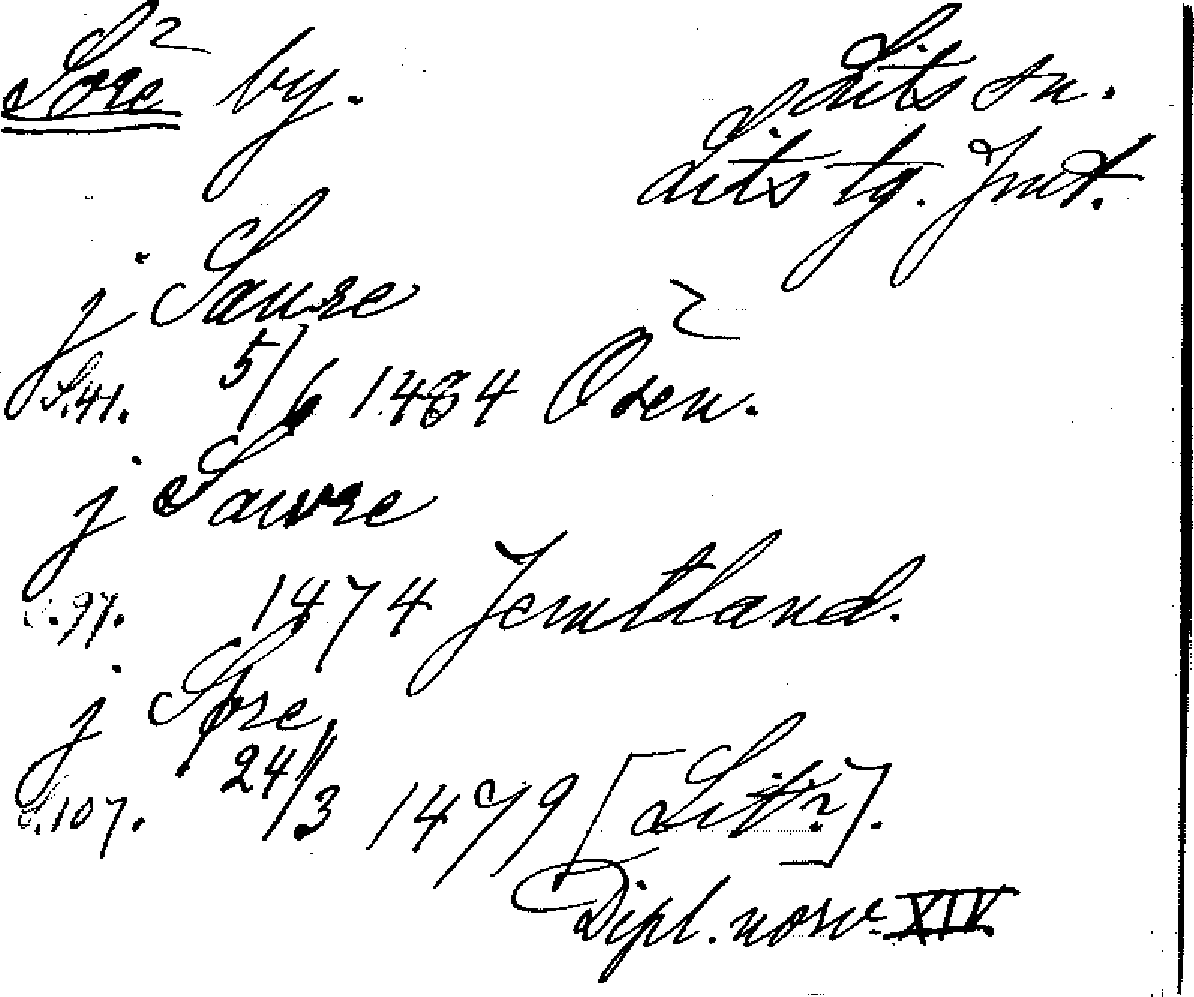 Söre by.
Lits sn.
Lits tg. Jmt.
j Saure
S.41. 5/6 1464
j Sawre
S.97. 1474 Jemtland.
j Støre
S.107. 24/3 1479 [Lit?].
Dipl. norv. XIV